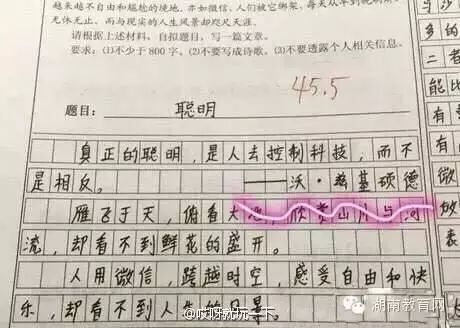 越来越不自由和尴尬的境地。亦如微信，人们被它绑架，每天从早到晚刷屏，
无休无止，而与现实的人生风景却咫尺天涯。
请根据上述材料，自拟题目，写一篇文章。
要求：⑴不少于800字。⑵不要写成诗歌。⑶不要透露个人相关信息。
45.5
题目：聪明
真正的聪明，是人去控制科技，而不
是相反。 ——沃·兹基硕德
雁飞于天，俯看大地，欣赏山川与河
流，却看不到鲜花的盛开。
人用微信，跨越时空，感受自由和快
乐，却看不到人生的风景。
乡的
二者
能比
有
有
微
放
表
@哎呀就玩一下
湖南教育网